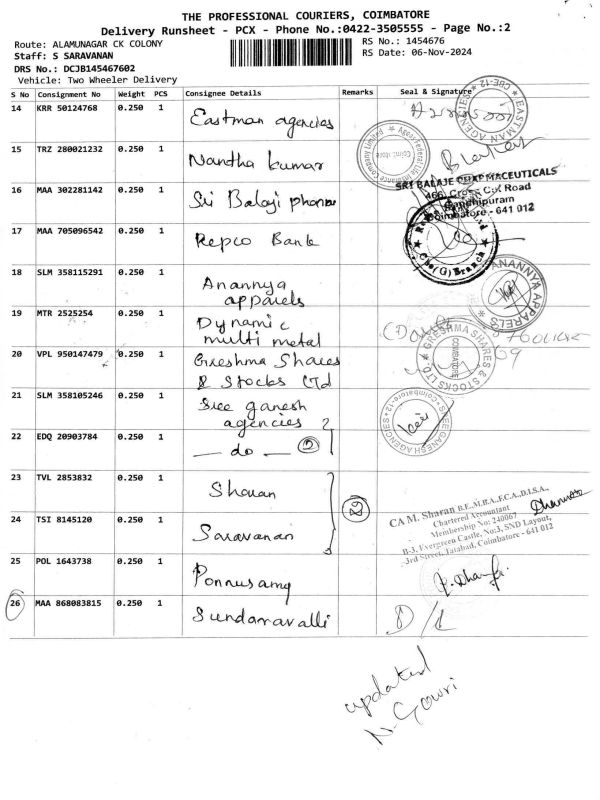 THE PROFESSIONAL COURIERS, COIMBATORE
Delivery Runsheet - PCX - Phone No.:0422-3505555 - Page No.:2
Route: ALAMUNAGAR CK COLONY
RS No.: 1454676
Staff: S SARAVANAN
RS Date: 06-Nov-2024
DRS No.: DCJB145467602
Vehicle: Two Wheeler Delivery
S No Consignment No Weight PCS Consignee Details Remarks Seal & Signature
14 KRR 50124768 0.250 1 Eastman agencies
EASTMAN AGENCIES
CBE-12
15 TRZ 280021232 0.250 1 Nantha kumar
Coimbatore
16 MAA 302281142 0.250 1 Sri Balaji pharma
SRI BALAJE PHARMACEUTICALS
466, Cross Cut Road
Gandhipuram
Coimbatore - 641 012
17 MAA 705096542 0.250 1 Repco Bank
Cbe(G) Branch
18 SLM 358115291 0.250 1 Anannya
apparels
ANANNYA APPARELS
19 MTR 2525254 0.250 1 Dynamic
multi metal
20 VPL 950147479 0.250 1 Greshma Shares
& Stocks Ltd
GRESHMA SHARES & STOCKS LTD.
COIMBATORE
21 SLM 358105246 0.250 1 Sree ganesh
agencies
SREE GANESH AGENCIES
Coimbatore-12
22 EDQ 20903784 0.250 1 — do — 2
23 TVL 2853832 0.250 1 Sharan
CA M. Sharan B.E.,M.B.A.,F.C.A.,D.I.S.A.,
Chartered Accountant
Membership No: 240067
B-3, Evergreen Castle, No:3, SND Layout,
3rd Street, Tatabad, Coimbatore - 641 012
24 TSI 8145120 0.250 1 Saravanan
25 POL 1643738 0.250 1 Ponnusamy
26 MAA 868083815 0.250 1 Sundaravalli D/L
updated
N. Gowri